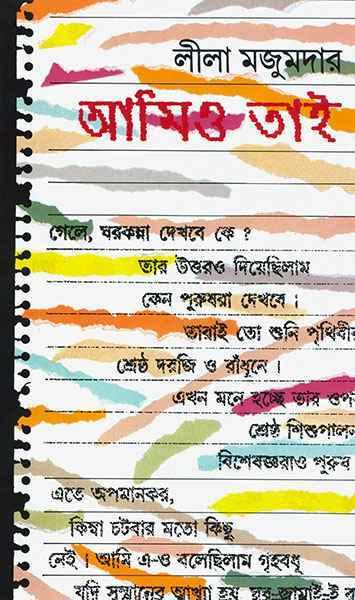 লীলা মজুমদার
আমিও তাই
গেলে, ঘরকন্না দেখবে কে ?
তার উত্তরও দিয়েছিলাম
কেন পুরুষরা দেখবে ।
তারাই তো শুনি পৃথিবীর
শ্রেষ্ঠ দরজি ও রাঁধুনে ।
এখন মনে হচ্ছে তার ওপর
শ্রেষ্ঠ শিশুপালন
বিশেষজ্ঞরাও পুরুষ
এতে অপমানকর,
কিম্বা চটবার মতো কিছু
নেই । আমি এ-ও বলেছিলাম গৃহবধূ
যদি সম্মানের আখ্যা হয়